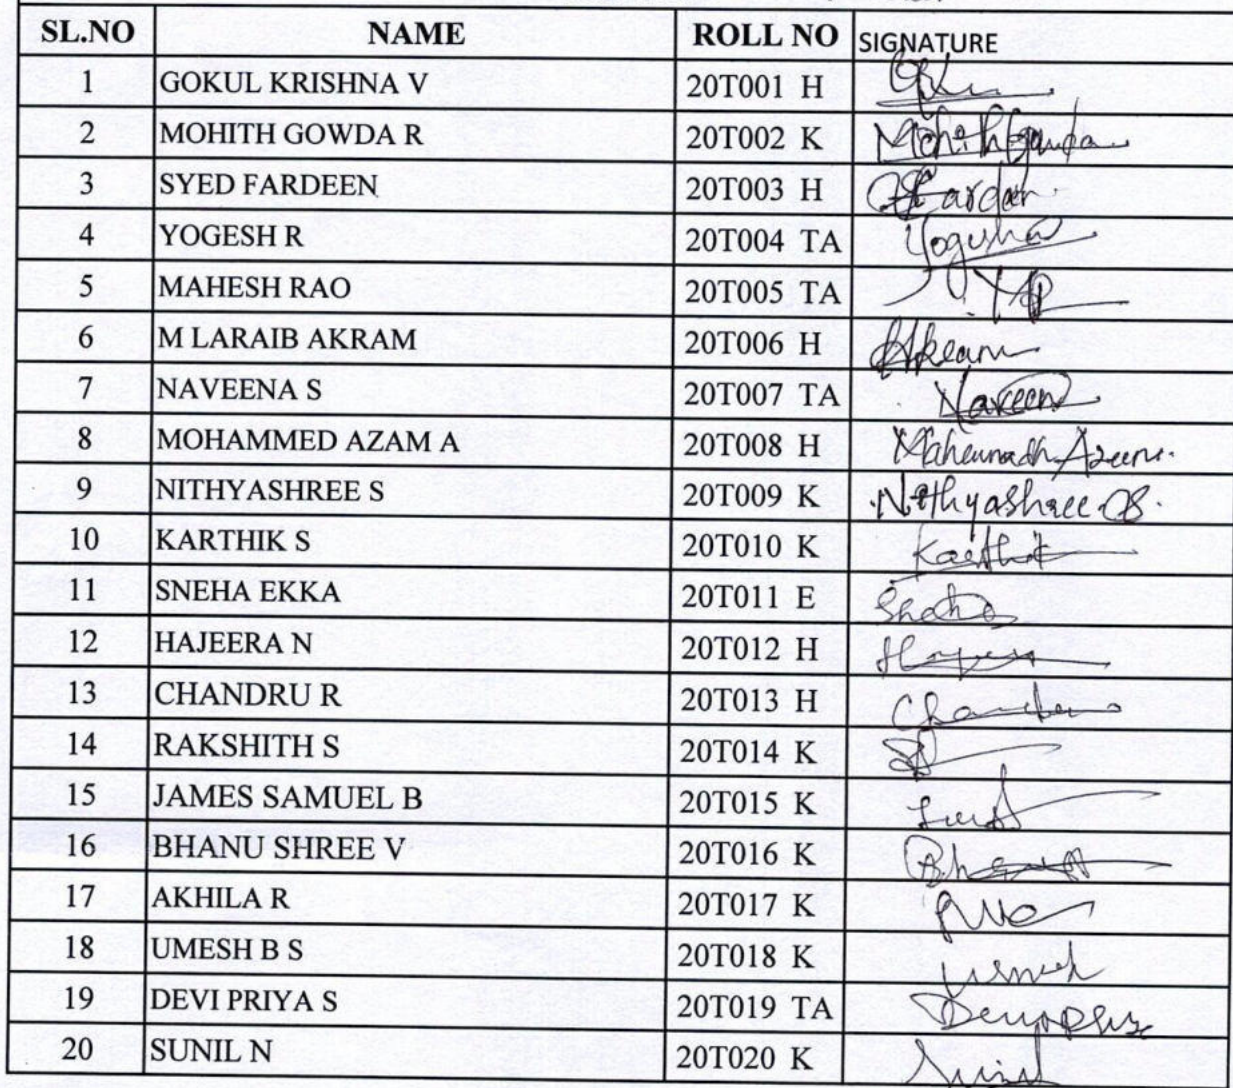 SL.NO NAME ROLL NO SIGNATURE
1 GOKUL KRISHNA V 20T001 H
2 MOHITH GOWDA R 20T002 K Mohith Gowda
3 SYED FARDEEN 20T003 H
4 YOGESH R 20T004 TA
5 MAHESH RAO 20T005 TA
6 M LARAIB AKRAM 20T006 H
7 NAVEENA S 20T007 TA Naveen
8 MOHAMMED AZAM A 20T008 H
9 NITHYASHREE S 20T009 K Nithyashree.S.
10 KARTHIK S 20T010 K Karthik
11 SNEHA EKKA 20T011 E Sneha
12 HAJEERA N 20T012 H
13 CHANDRU R 20T013 H
14 RAKSHITH S 20T014 K
15 JAMES SAMUEL B 20T015 K
16 BHANU SHREE V 20T016 K
17 AKHILA R 20T017 K
18 UMESH B S 20T018 K
19 DEVI PRIYA S 20T019 TA
20 SUNIL N 20T020 K